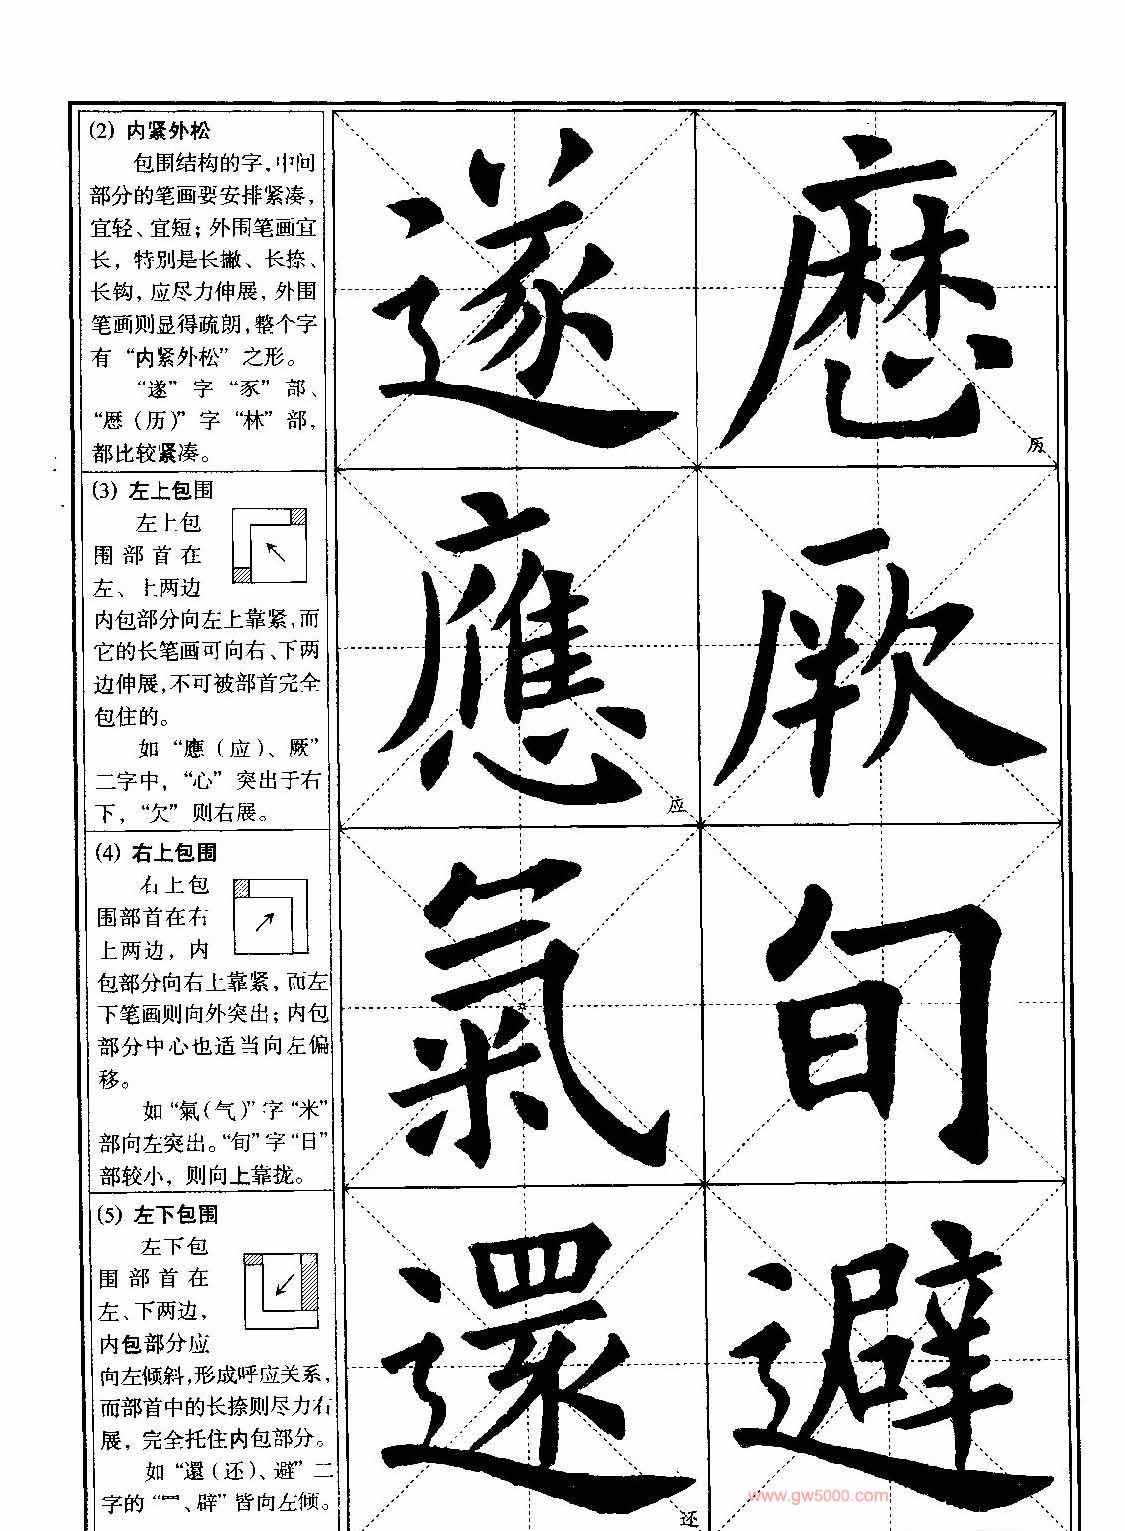 (2) 内紧外松
包围结构的字，中间
部分的笔画要安排紧凑，
宜轻、宜短；外围笔画宜
长，特别是长撇、长捺、
长钩，应尽力伸展，外围
笔画则显得疏朗，整个字
有“内紧外松”之形。
“遂”字“豕”部、
“厯（历）”字“林”部，
都比较紧凑。
遂 厯
历
(3) 左上包围
左上包
围部首在
左、上两边
内包部分向左上靠紧，而
它的长笔画可向右、下两
边伸展，不可被部首完全
包住的。
如“應（应）、厥”
二字中，“心”突出于右
下，“欠”则右展。
應 厥
应
(4) 右上包围
右上包
围部首在右
上两边，内
包部分向右上靠紧，而左
下笔画则向外突出；内包
部分中心也适当向左偏
移。
如“氣（气）”字“米”
部向左突出。“旬”字“日”
部较小，则向上靠拢。
氣 旬
(5) 左下包围
左下包
围部首在
左、下两边，
内包部分应
向左倾斜，形成呼应关系，
而部首中的长捺则尽力右
展，完全托住内包部分。
如“還（还）、避”二
字的“罒、辟”皆向左倾。
還 避
还
www.gw5000.com